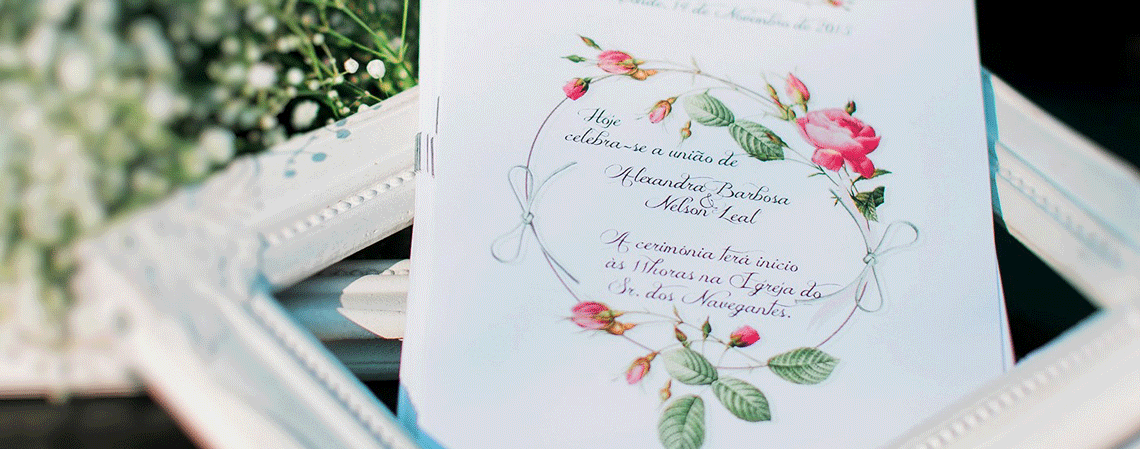 14 de Novembro de 2015
Hoje
celebra-se a união de
Alexandra Barbosa
&
Nelson Leal
A cerimónia terá início
às 11horas na Igreja do
Sr. dos Navegantes.